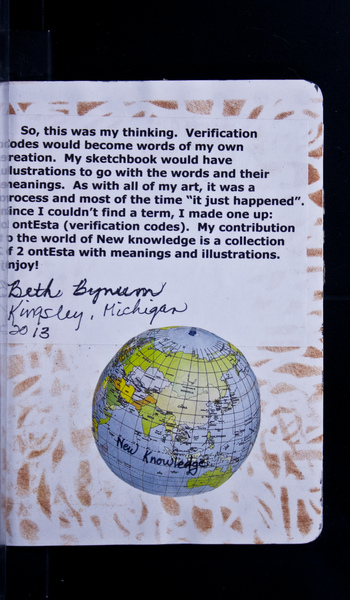 So, this was my thinking. Verification
odes would become words of my own
reation. My sketchbook would have
llustrations to go with the words and their
meanings. As with all of my art, it was a
process and most of the time "it just happened".
since I couldn't find a term, I made one up:
ontEsta (verification codes). My contribution
o the world of New knowledge is a collection
of 2 ontEsta with meanings and illustrations.
njoy!
Beth Bynum
Kingsley, Michigan
2013
New Knowledge